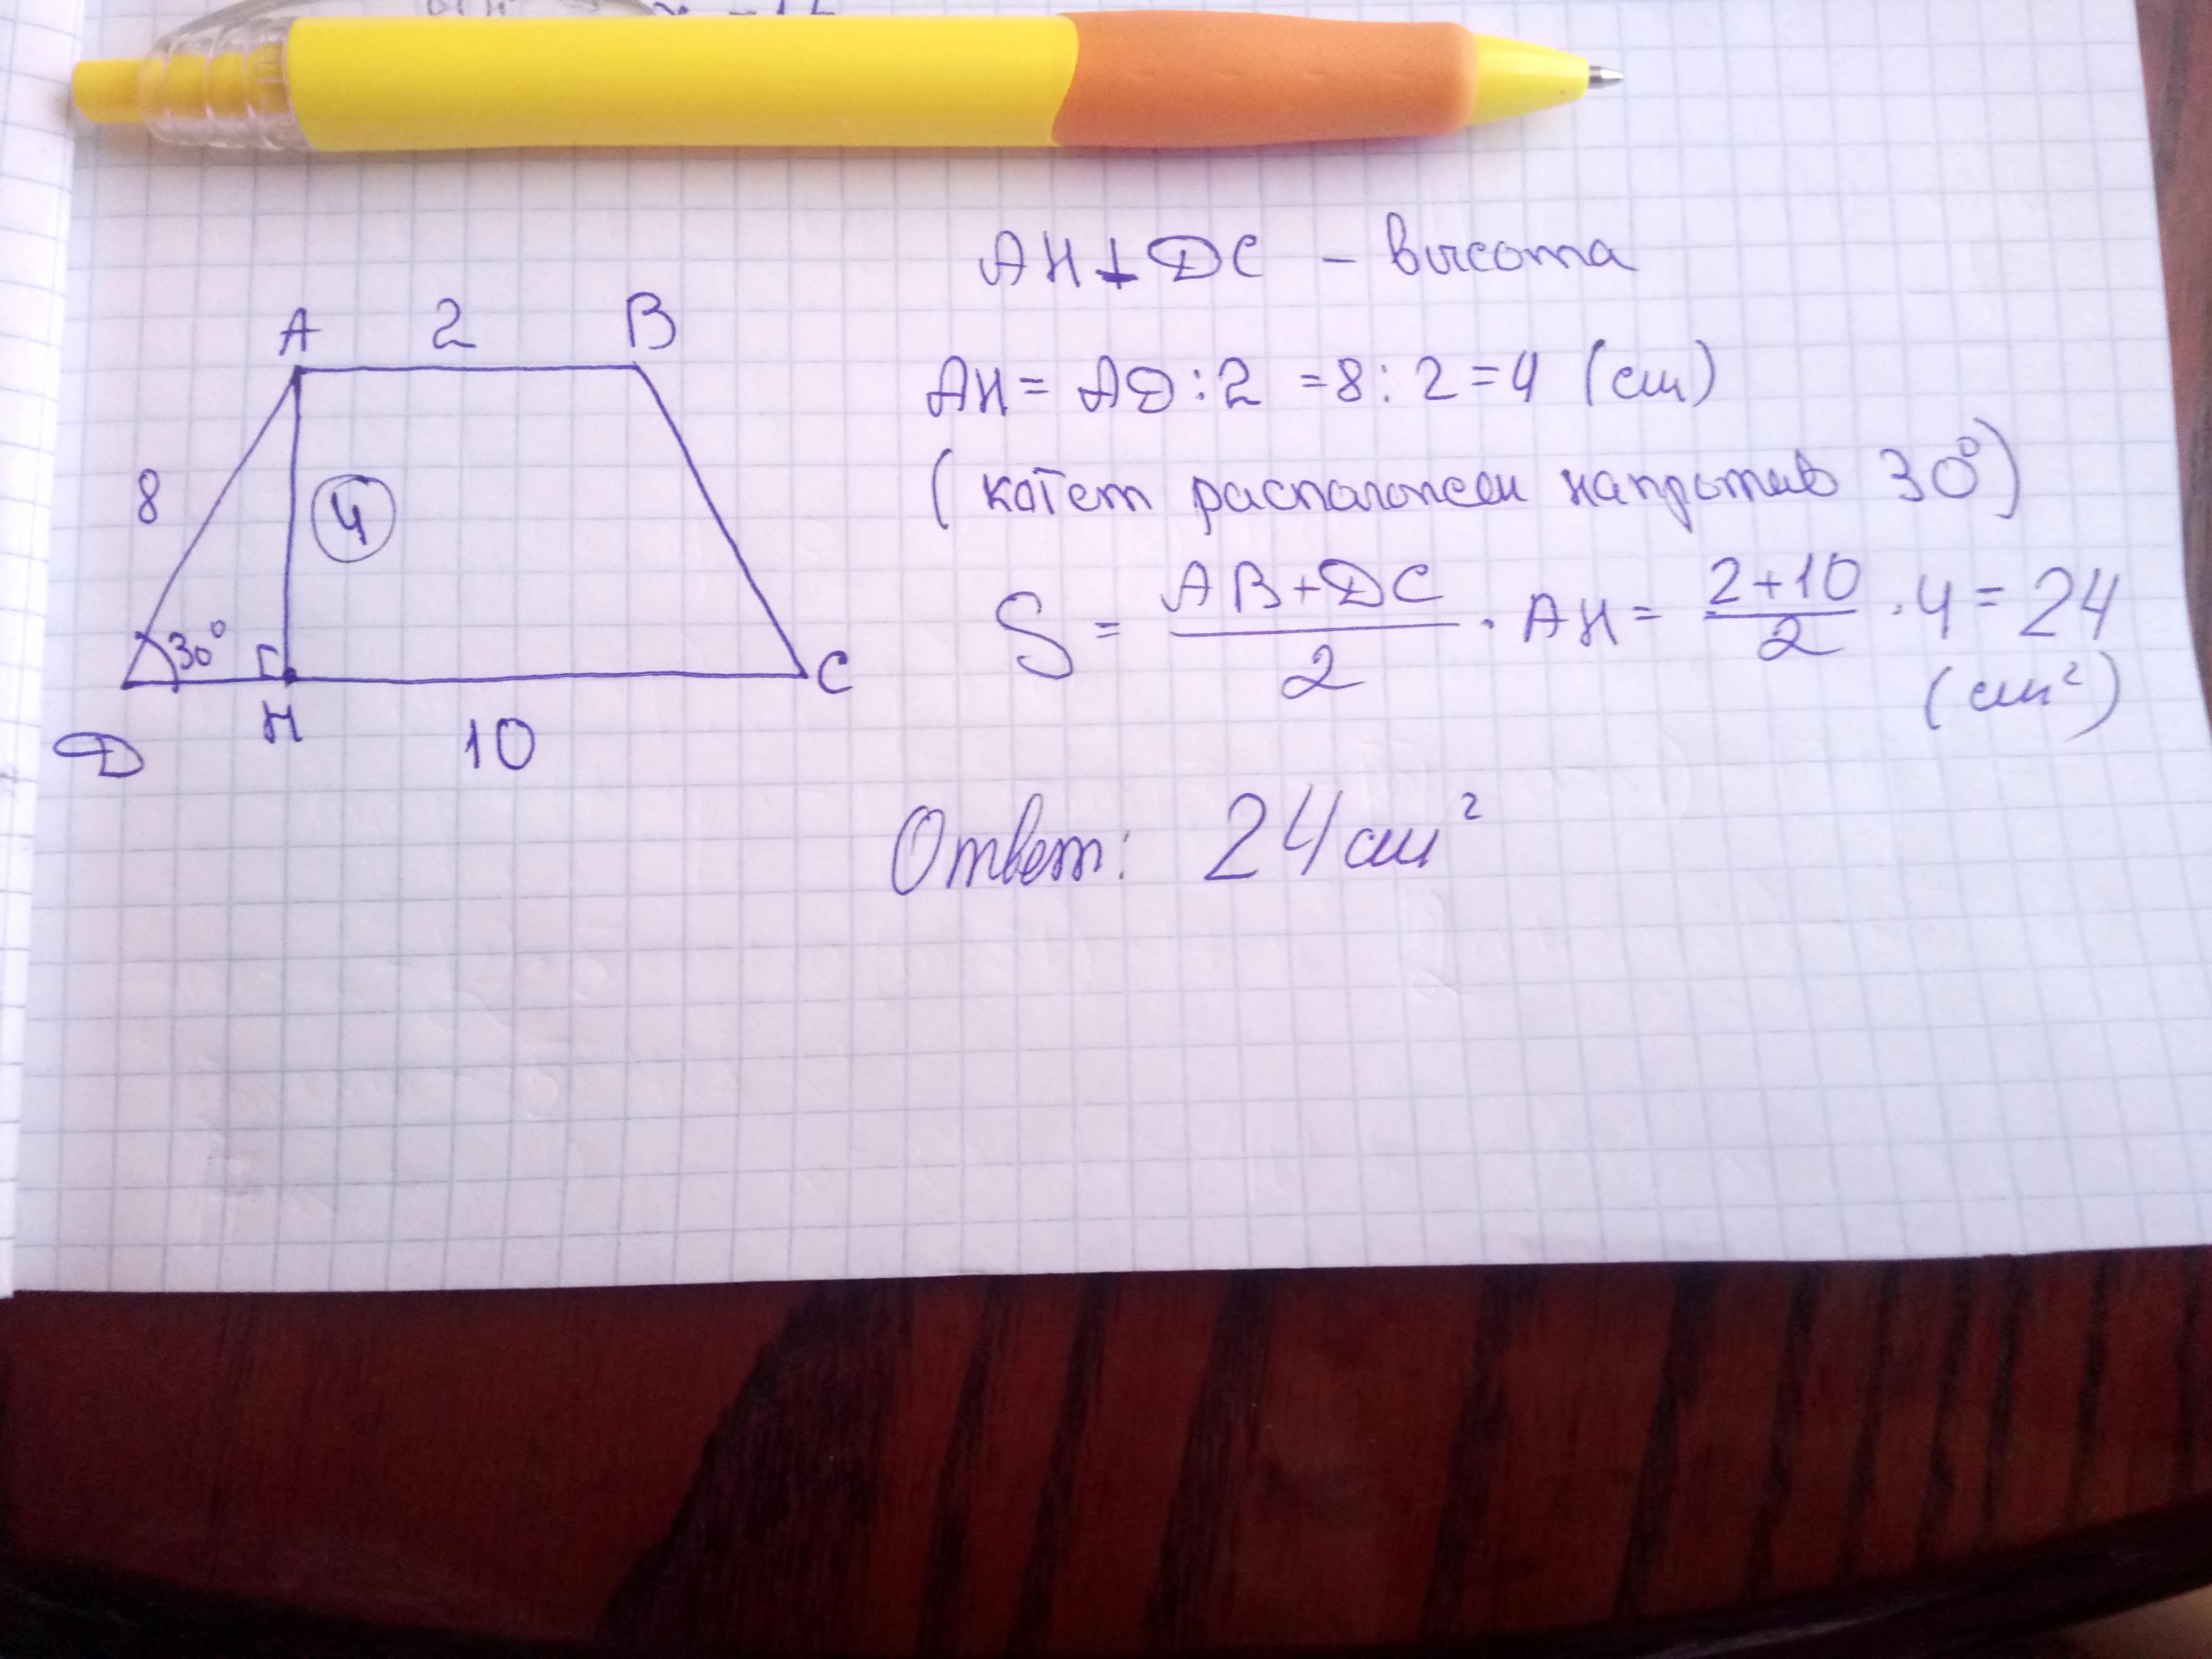 AH⊥DC – высота
A 2 B
AH = AD : 2 = 8 : 2 = 4 (см)
8 4
(катет расположен напротив 30°)
S = (AB+DC)/2 · AH = (2+10)/2 · 4 = 24
(см²)
30° C
D H 10
Ответ: 24 см²